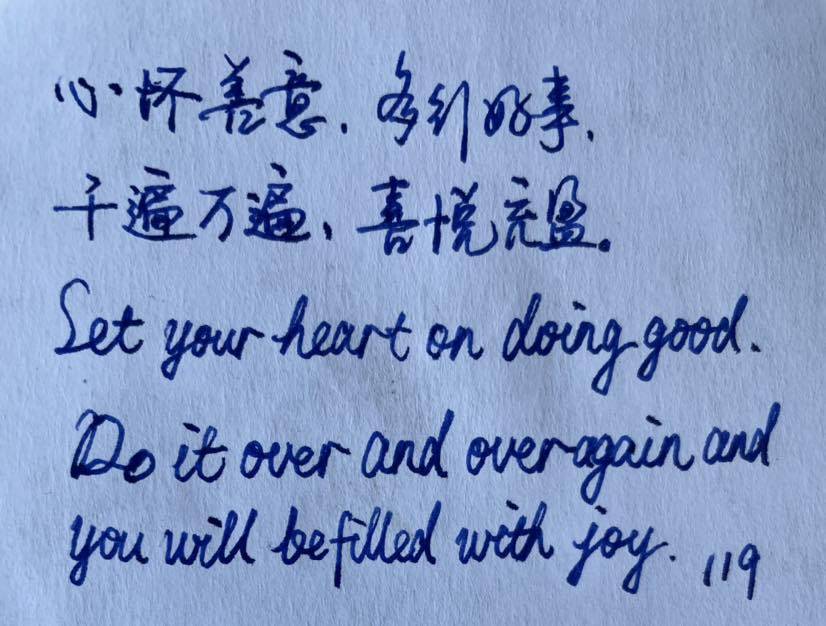 心怀善意，多行好事，
千遍万遍，喜悦充盈。
Set your heart on doing good.
Do it over and over again and
you will be filled with joy. 119